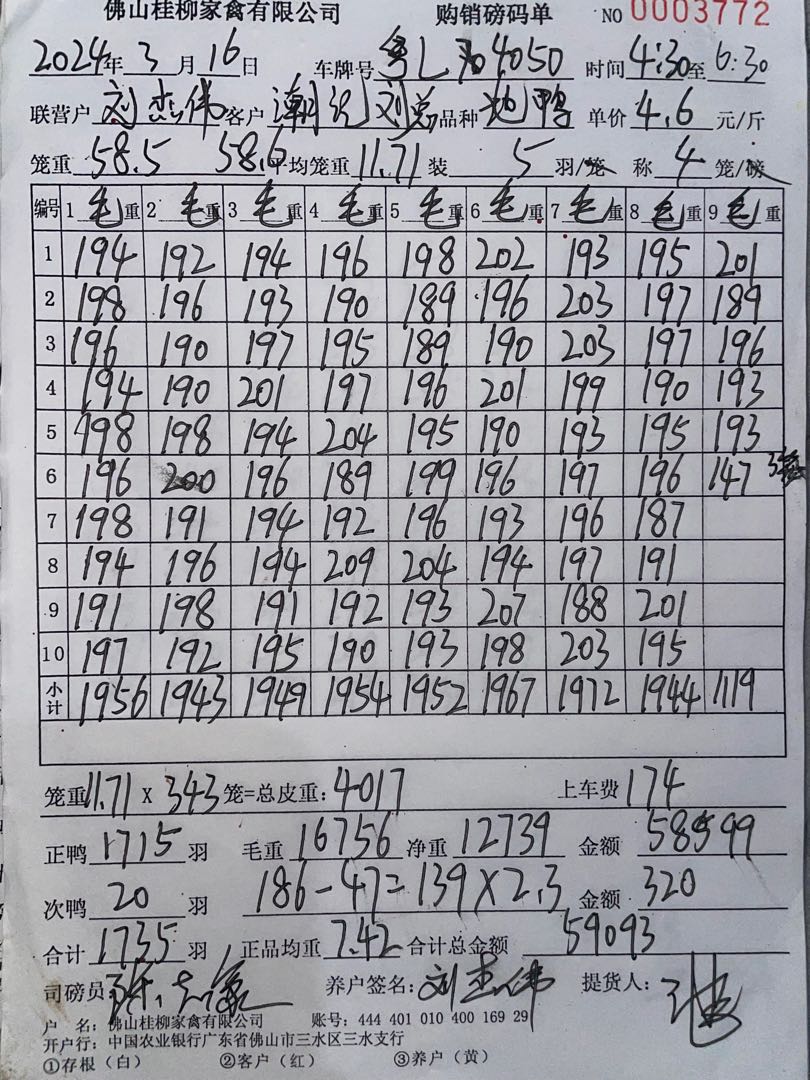 佛山桂柳家禽有限公司 购销磅码单 NO 0003772
2024年 3 月 16 日 车牌号 粤L 4050 时间 4:30 至 6:30
联营户 刘杰伟 客户 潮记刘总 品种 地鸭 单价 4.6 元/斤
笼重 58.5 58.6 平均笼重 11.71 装 5 羽/笼 称 4 笼/磅
编号 1 毛重 2 毛重 3 毛重 4 毛重 5 毛重 6 毛重 7 毛重 8 毛重 9 毛重
1 194 192 194 196 198 202 193 195 201
2 198 196 193 190 189 196 203 197 189
3 196 190 197 195 189 190 203 197 196
4 194 190 201 197 196 201 199 190 193
5 198 198 194 204 195 190 193 195 193
6 196 200 196 189 199 196 197 196 147 3笼
7 198 191 194 192 196 193 196 187
8 194 196 194 209 204 194 197 191
9 191 198 191 192 193 207 188 201
10 197 192 195 190 193 198 203 195
小计 1956 1943 1949 1954 1952 1967 1972 1944 1119
笼重 11.71 x 343 笼=总皮重: 4017 上车费 174
正鸭 1715 羽 毛重 16756 净重 12739 金额 58599
次鸭 20 羽 186-47=139×2.3 金额 320
合计 1735 羽 正品均重 7.42 合计总金额 59093
司磅员: 养户签名: 刘杰伟 提货人:
户 名: 佛山桂柳家禽有限公司 账号: 444 401 010 400 169 29
开户行: 中国农业银行广东省佛山市三水区三水支行
①存根（白） ②客户（红） ③养户（黄）